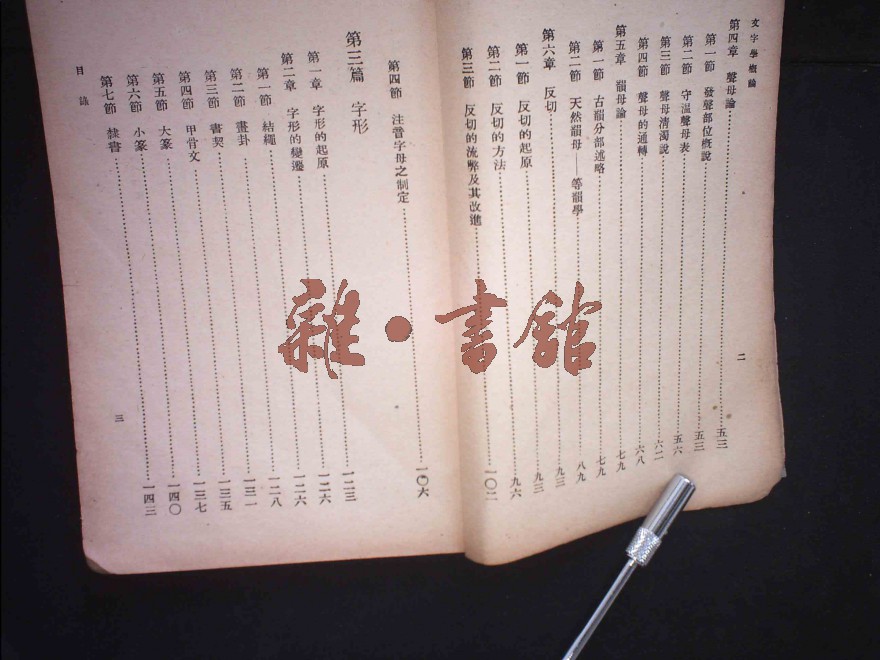 文字學概論
二
第四章　聲母論……五三
第一節　發聲部位概說……五三
第二節　守溫聲母表……五六
第三節　聲母清濁說……六二
第四節　聲母的通轉……六八
第五章　韻母論……七九
第一節　古韻分部述略……七九
第二節　天然韻母——等韻學……八九
第六章　反切……九三
第一節　反切的起原……九三
第二節　反切的方法……九六
第三節　反切的流弊及其改進……一〇二
第四節　注音字母之制定……一〇六
第三篇　字形……一二三
第一章　字形的起原……一二六
第二章　字形的變遷……一二六
第一節　結繩……一二八
第二節　畫卦……一三一
第三節　書契……一三五
第四節　甲骨文……一三七
第五節　大篆……一四〇
第六節　小篆……一四三
第七節　隸書
目錄
三
雜·書館